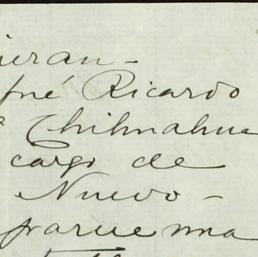 ieran-
fné Ricardo
Chihuahua
cargo de
Nuevo-
parue una